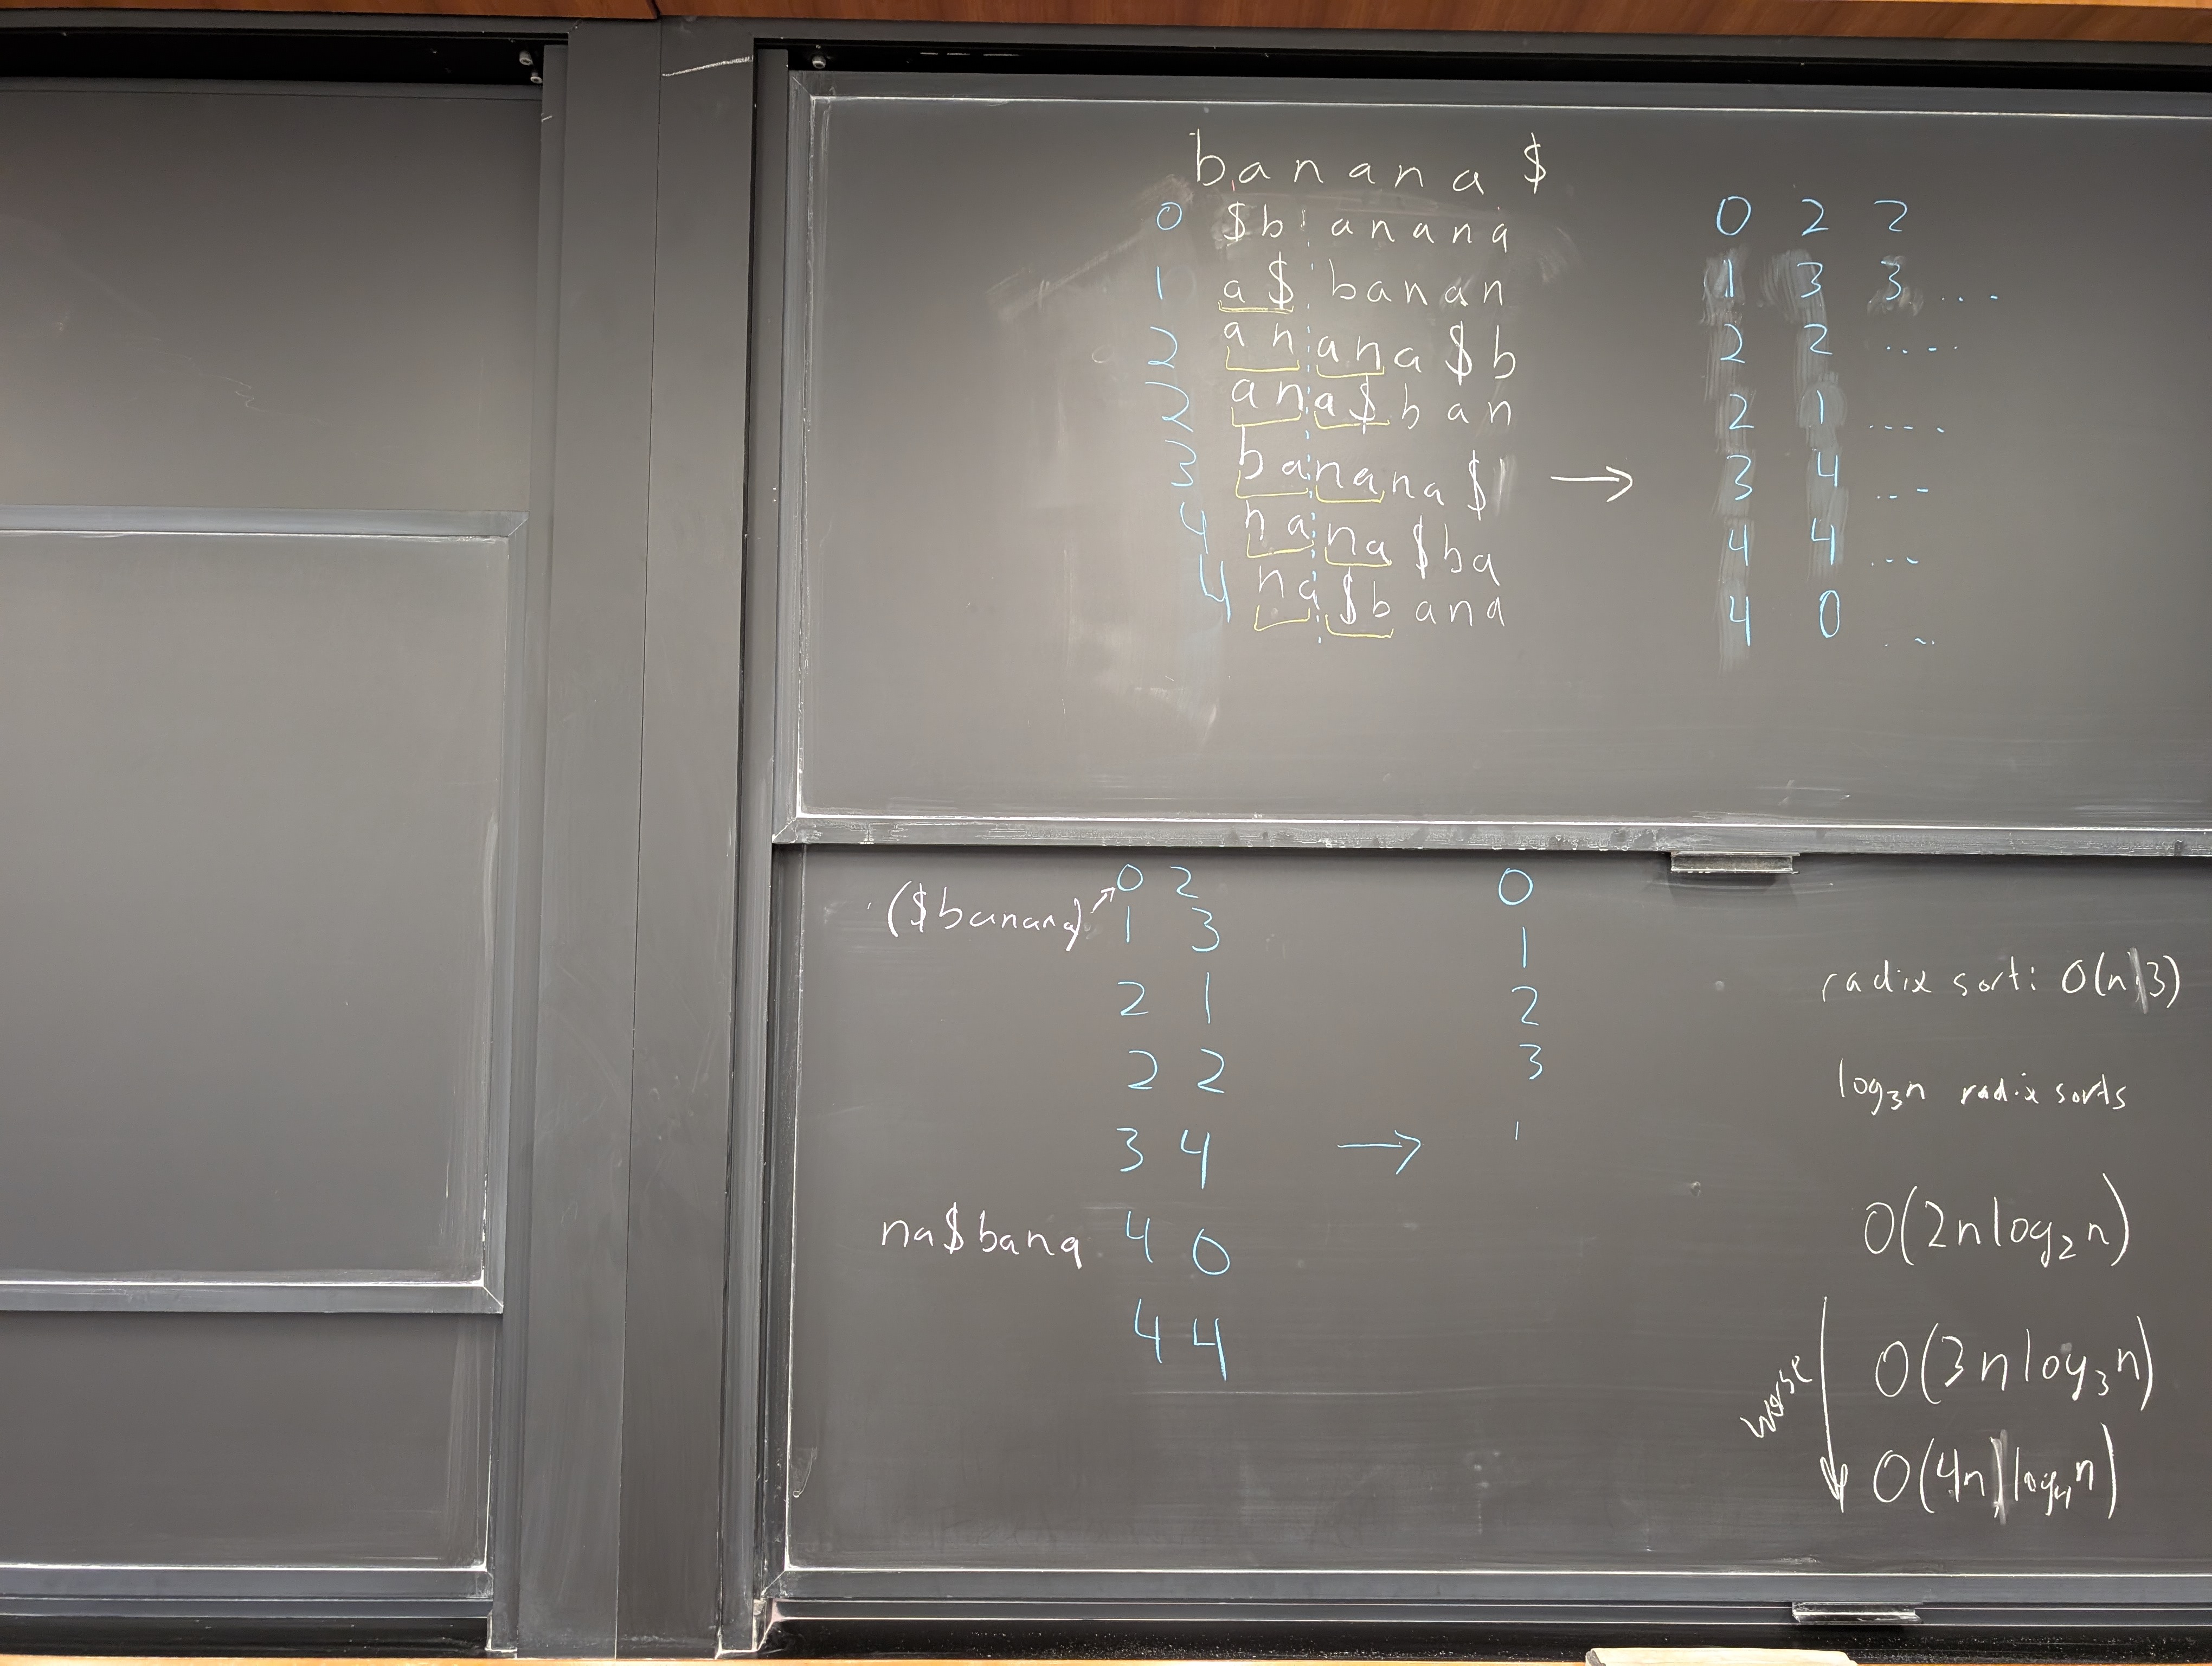 banana$
0 $b anana 0 2 2
1 a$ banan 1 3 3 ...
2 an ana$b 2 2 ....
2 an a$ban 2 1 ....
3 ba nana$ → 3 4 ...
4 na na$ba 4 4 ...
4 na $bana 4 0 ..
($banana) 0 2
1 3
2 1
2 2
3 4 →
na$bana 4 0
4 4
0
1
2
3
radix sort: O(n 3)
log₃n radix sorts
O(2n log₂ n)
O(3n log₃ n)
worse
O(4n log₄ n)